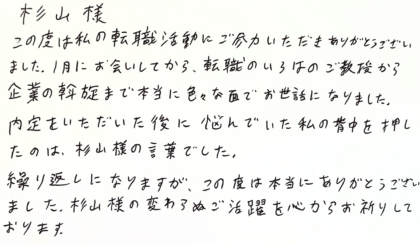 杉山様
この度は私の転職活動にご尽力いただきありがとうござい
ました。1月にお会いしてから、転職のいろはのご教授から
企業の斡旋まで本当に色々な面でお世話になりました。
内定をいただいた後に悩んでいた私の背中を押し
たのは、杉山様の言葉でした。
繰り返しになりますが、この度は本当にありがとうござい
ました。杉山様の変わらぬご活躍を心からお祈りして
おります。